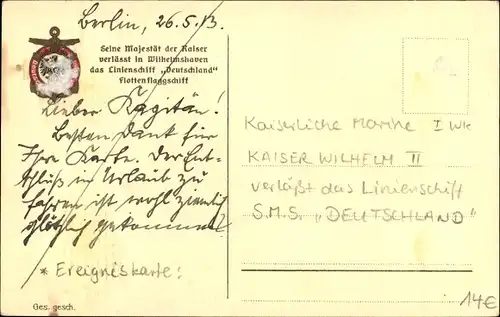 Berlin, 26.5.13.
Seine Majestät der Kaiser
verlässt in Wilhelmshaven
das Linienschiff „Deutschland“
Flottenflaggschiff
Lieber Kapitän!
Besten Dank für
Ihre Karte. Der Ent-
schluß in Urlaub zu
fahren ist wohl ziemlich
plötzlich gekommen?
* Ereigniskarte!
Ges. gesch.
Kaiserliche Marine I WK
KAISER WILHELM II
verläßt das Linienschiff
S.M.S. „DEUTSCHLAND“
14€